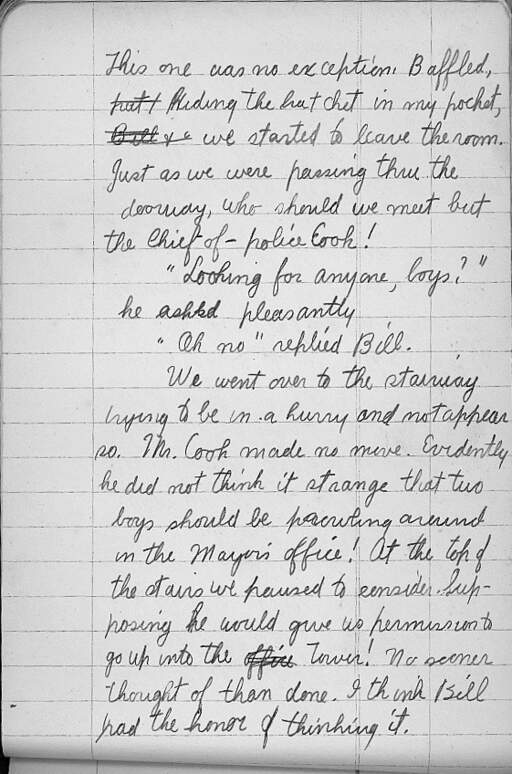 This one was no exception. Baffled,
but I Hiding the hatchet in my pocket,
Bill & we started to leave the room.
Just as we were passing thru the
doorway, who should we meet but
the Chief of-police Cook!
"Looking for anyone, boys?"
he asked pleasantly
"Oh no" replied Bill.
We went over to the stairway
trying to be in a hurry and not appear
so. Mr. Cook made no move. Evidently
he did not think it strange that two
boys should be prowling around
in the Mayor's office! At the top of
the stairs we paused to consider. Sup-
posing he would give us permission to
go up into the office Tower! No sooner
thought of than done. I think Bill
had the honor of thinking it.